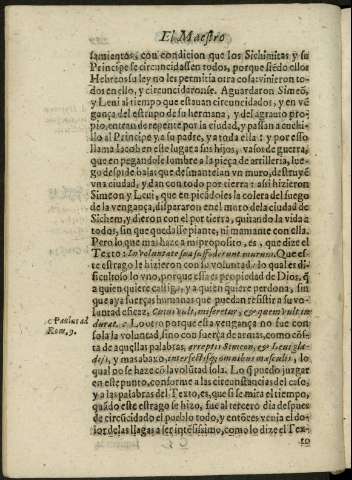 El Maestro
samientos, con condicion que los Sichimitas y su
Principe se circuncidassen todos, porque siẽdo ellos
Hebreos su ley no les permitia otra cosa: vinieron to-
dos en ello, y circuncidaronse. Aguardaron Simeõ,
y Leui al tiempo que estauan circuncidados, y en vẽ
gança del estrupo de su hermana, y del agrauio pro-
pio, entran de repente por la ciudad, y passan a cuchi-
llo al Principe y a su padre, y a toda ella: y por esso
llama Iacob en este lugar a sus hijos, vasos de guerra,
que en pegandose lumbre a la pieça de artilleria, lue-
go despide balas que desmantelan vn muro, destruyẽ
vna ciudad, y dan con todo por tierra: assi hizieron
Simeon y Leui, que en picãdoles la colera del fuego
de la vengança, dispararon en el muro de la ciudad de
Sichem, y dieron con el por tierra, quitando la vida a
todos, sin que quedasse piante, ni mamante con ella.
Pero lo que mas haze a mi proposito, es, que dize el
Texto: In voluntate sua suffoderunt murum. Que es-
te estrago le hizieron con su voluntad: lo qual es di-
ficultoso lo vno, porque essa es propiedad de Dios, q̃
a quien quiere castiga, y a quien quiere perdona, sin
que aya fuerças humanas que puedan resistir a su vo-
luntad eficaz, Cuius vult, miseretur, & quem vult in
durat. c Lo otro porque esta vengança no fue con
sola la voluntad, sino con fuerça de armas, como cõs-
ta de aquellas palabras, arreptis Simeon, & Leui gla-
dijs, y mas abaxo, interfectisq; omnibus masculis, lo
qual no se haze cõ la volũtad sola. Lo q̃ puedo juzgar
en este punto, conforme a las circunstancias del caso,
y a las palabras del Texto, es, que si se mira el tiempo,
quãdo este estrago se hizo, fue al tercero dia despues
de circũcidado el pueblo todo, y entonces venia el do-
lor de las llagas a ser intẽsissimo, como lo dize el Tex-
to
c Paulus ad
Rom. 9.